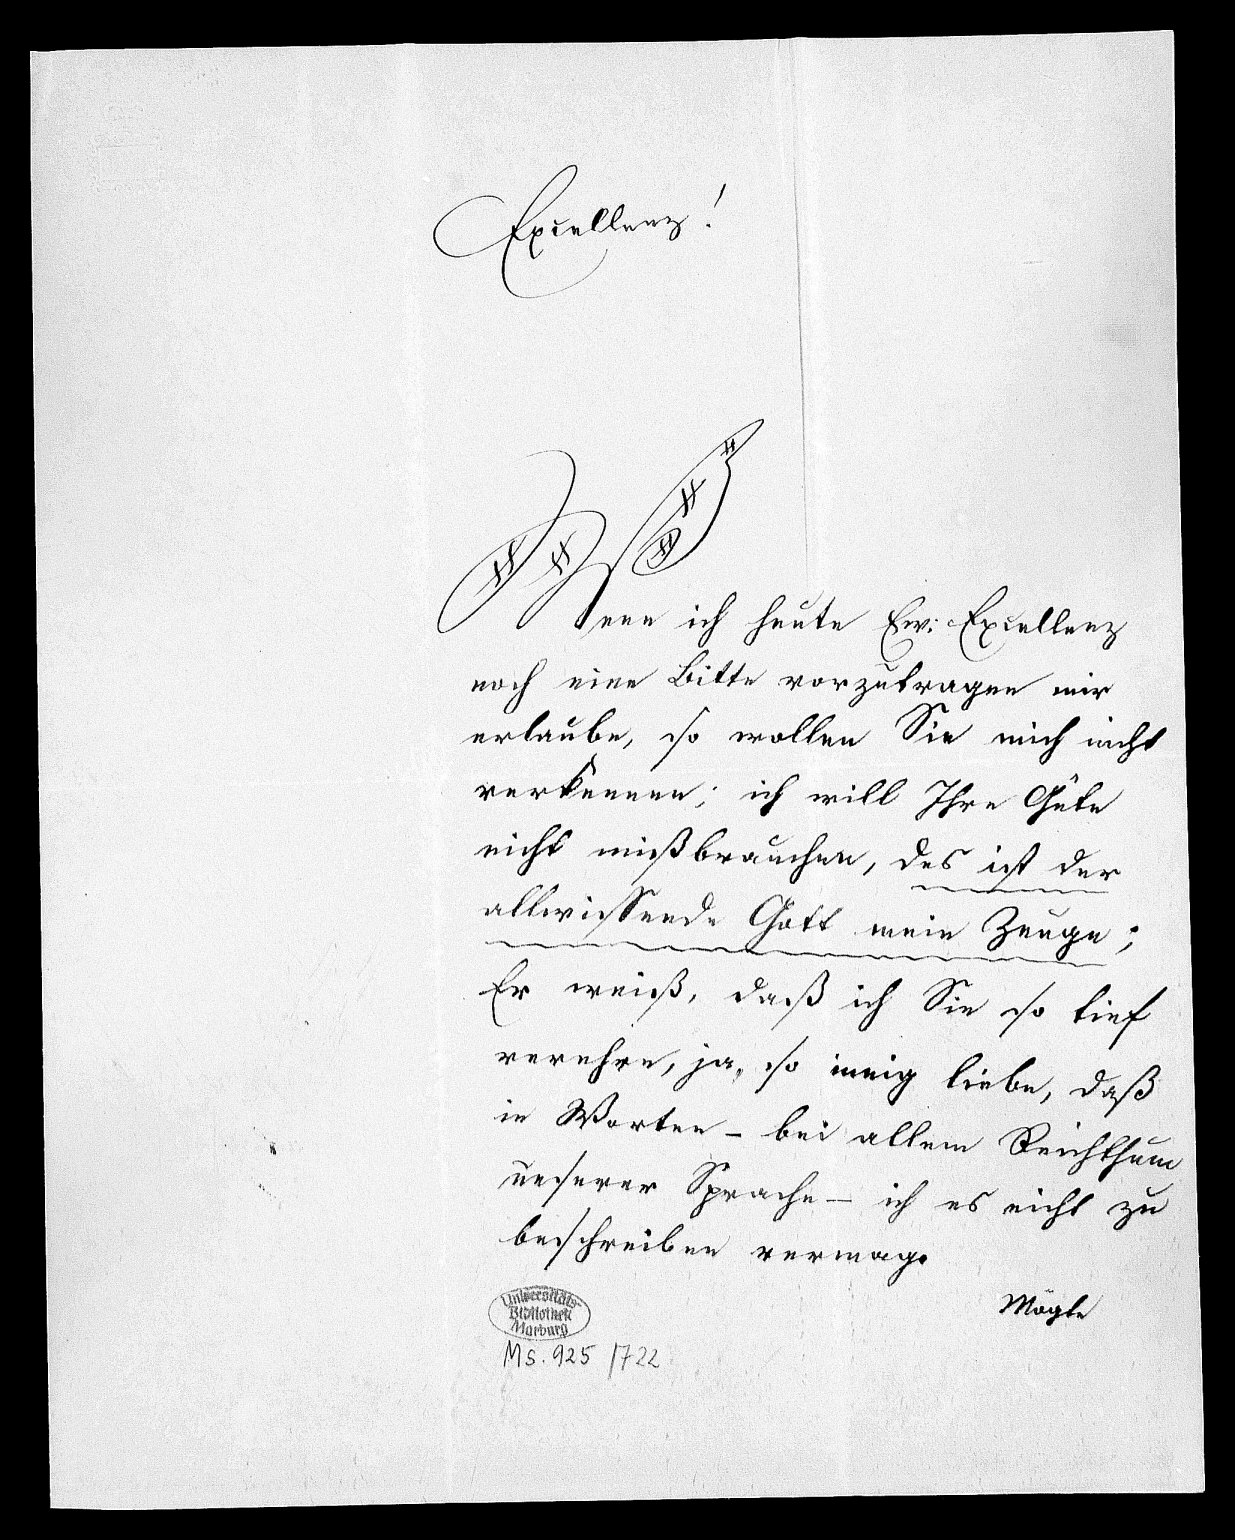 Excellenz!
Wenn ich heute Ew: Excellenz
noch eine Bitte vorzutragen mir
erlaube, so wollen Sie mich nicht
verkennen; ich will Ihre Güte
nicht mißbrauchen, des ist der
allwissende Gott mein Zeuge;
Er weiß, daß ich Sie so tief
verehre, ja, so innig liebe, daß
in Worten – bei allem Reichthum
unserer Sprache – ich es nicht zu
beschreiben vermag.
Mögte
Universitäts-
Bibliothek
Marburg
Ms. 925/722